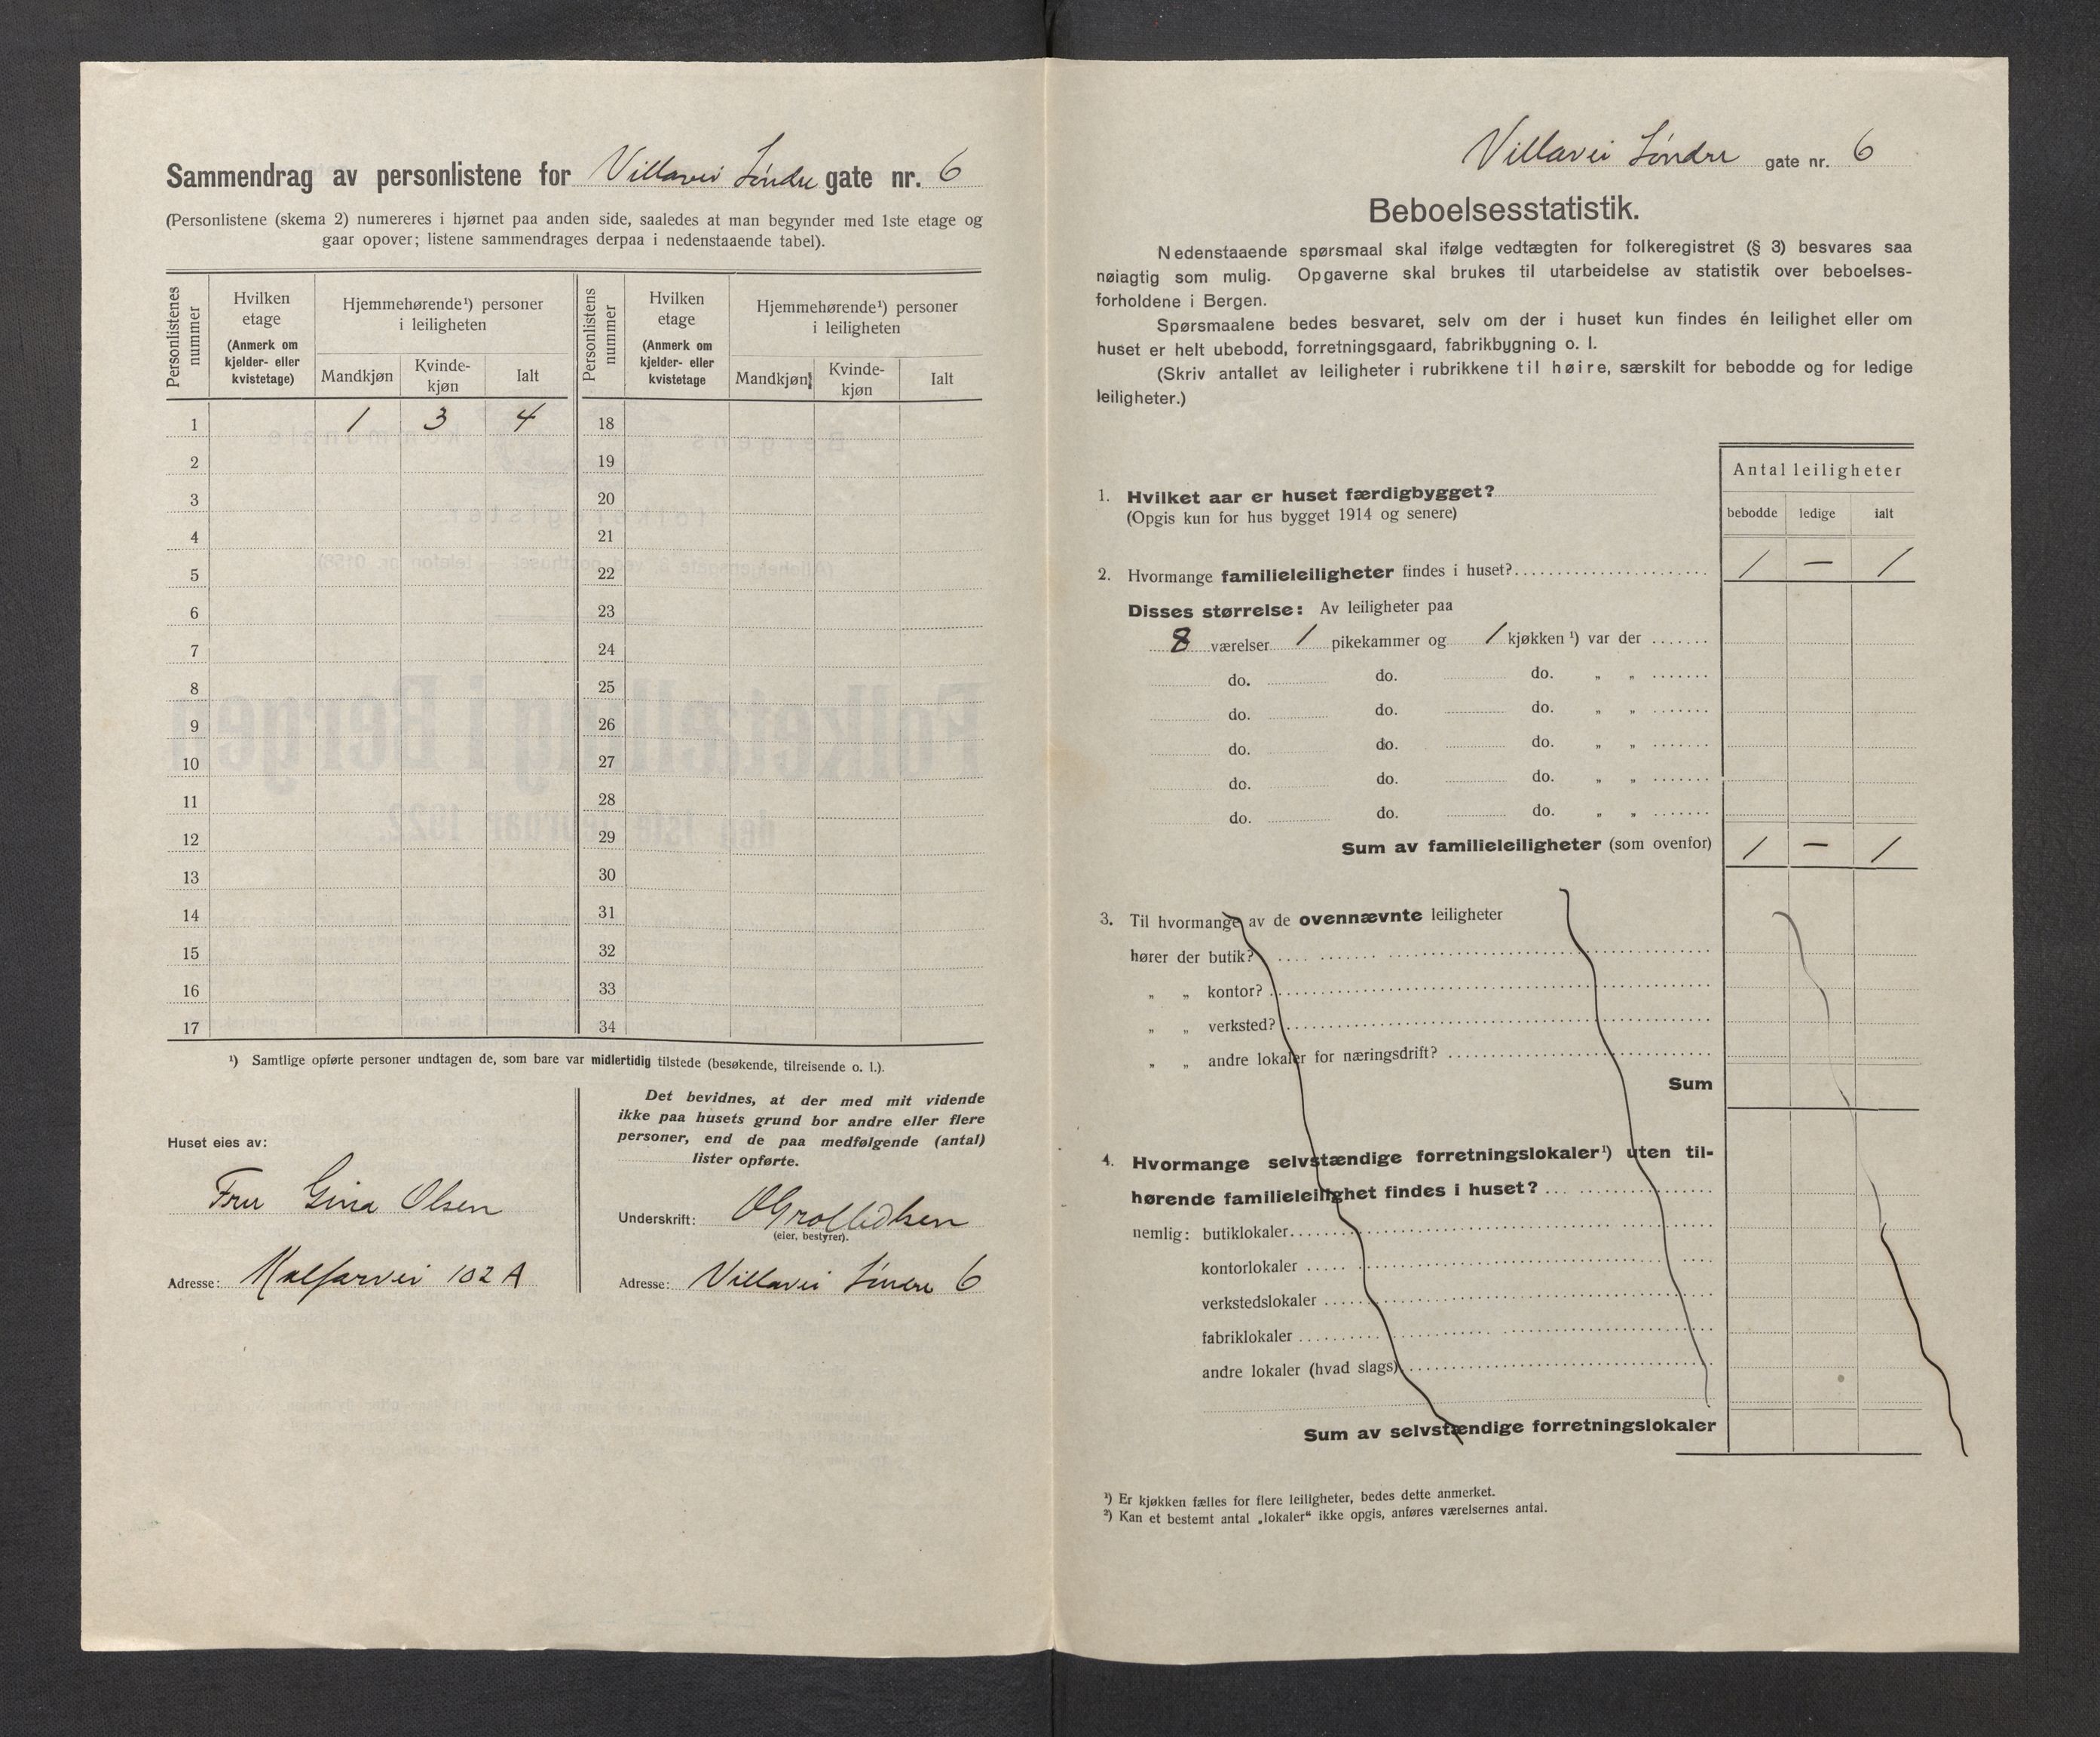 Sammendrag av personlistene for Villavei Søndre gate nr. 6
(Personlistene (skema 2) numereres i hjørnet paa anden side, saaledes at man begynder med 1ste etage og
gaar opover; listene sammendrages derpaa i nedenstaaende tabel).
Personlistenes nummer
Hvilken etage (Anmerk om kjelder- eller kvistetage)
Hjemmehørende¹) personer i leiligheten
Mandkjøn Kvinde-kjøn Ialt
Personlistens nummer
Hvilken etage (Anmerk om kjelder- eller kvistetage
Hjemmehørende¹) personer i leiligheten
Mandkjøn Kvinde-kjøn Ialt
1 1 3 4 18
2 19
3 20
4 21
5 22
6 23
7 24
8 25
9 26
10 27
11 28
12 29
13 30
14 31
15 32
16 33
17 34
¹) Samtlige opførte personer undtagen de, som bare var midlertidig tilstede (besøkende, tilreisende o. l.).
Huset eies av:
Fru Gina Olsen
Adresse: Kalfarvei 102 A
Det bevidnes, at der med mit vidende
ikke paa husets grund bor andre eller flere
personer, end de paa medfølgende (antal)
lister opførte.
Underskrift:
(eier, bestyrer).
Adresse: Villavei Søndre 6
Villavei Søndre gate nr. 6
Beboelsesstatistik.
Nedenstaaende spørsmaal skal ifølge vedtægten for folkeregistret (§ 3) besvares saa
nøiagtig som mulig. Opgaverne skal brukes til utarbeidelse av statistik over beboelses-
forholdene i Bergen.
Spørsmaalene bedes besvaret, selv om der i huset kun findes én leilighet eller om
huset er helt ubebodd, forretningsgaard, fabrikbygning o. l.
(Skriv antallet av leiligheter i rubrikkene til høire, særskilt for bebodde og for ledige
leiligheter.)
Antal leiligheter
bebodde ledige ialt
1. Hvilket aar er huset færdigbygget?
(Opgis kun for hus bygget 1914 og senere)
2. Hvormange familieleiligheter findes i huset? 1 — 1
Disses størrelse: Av leiligheter paa
8 værelser 1 pikekammer og 1 kjøkken ¹) var der
do. do. do. „ „
do. do. do. „ „
do. do. do. „ „
do. do. do. „ „
do. do. do. „ „
Sum av familieleiligheter (som ovenfor) 1 — 1
3. Til hvormange av de ovennævnte leiligheter
hører der butik?
„ „ kontor?
„ „ verksted?
„ „ andre lokaler for næringsdrift?
Sum
4. Hvormange selvstændige forretningslokaler¹) uten til-
hørende familieleilighet findes i huset?
nemlig: butiklokaler
kontorlokaler
verkstedslokaler
fabriklokaler
andre lokaler (hvad slags)
Sum av selvstændige forretningslokaler
¹) Er kjøkken fælles for flere leiligheter, bedes dette anmerket.
²) Kan et bestemt antal „lokaler“ ikke opgis, anføres værelsernes antal.